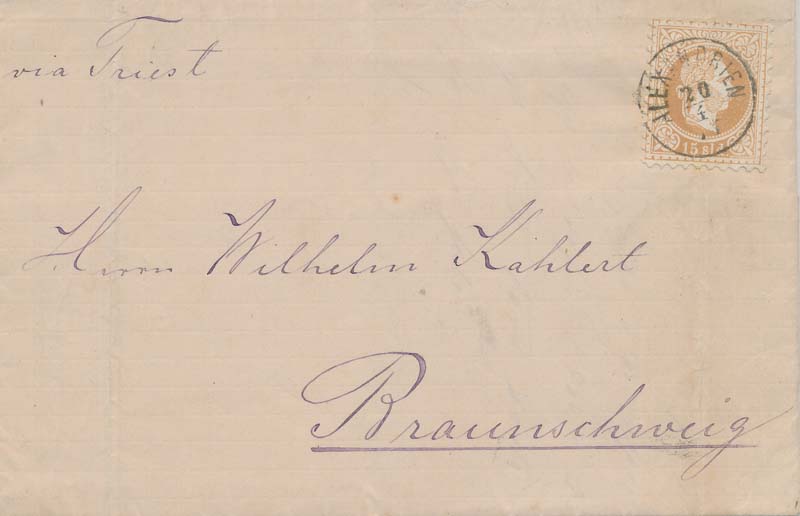 via Triest
ALEXANDRIEN
20
4
15 sld
Herrn Wilhelm Kahlert
Braunschweig